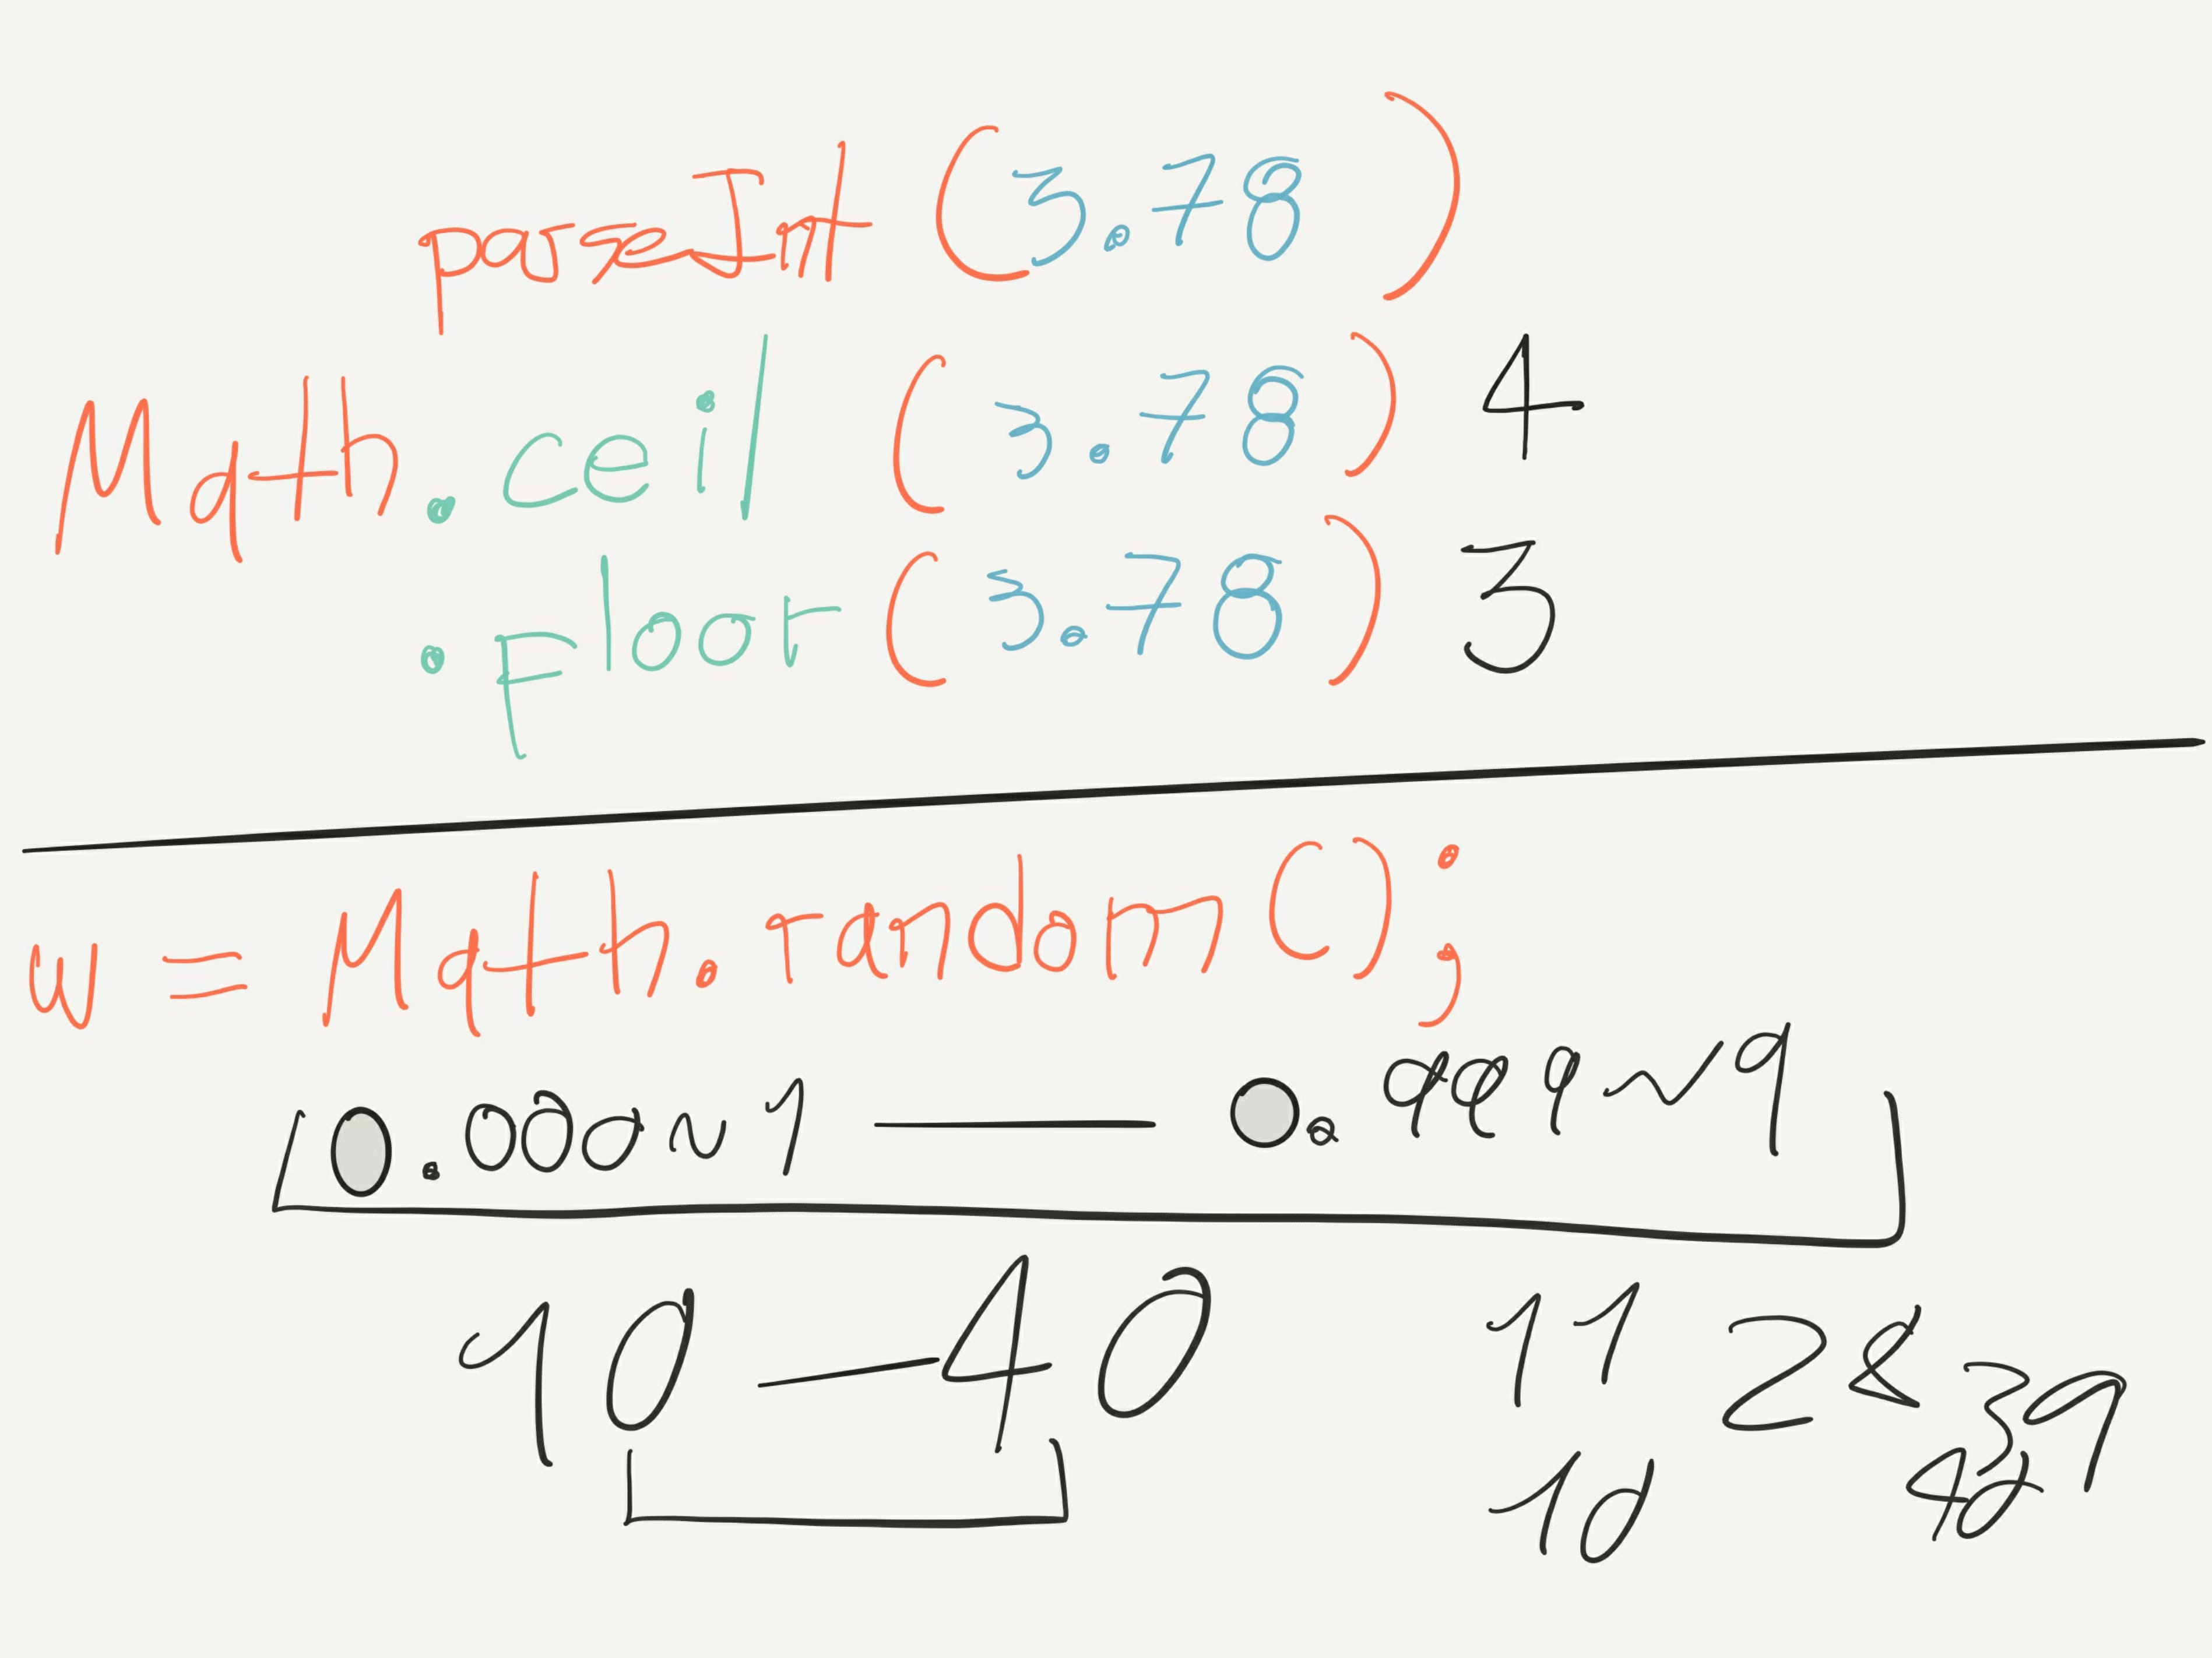 parseInt (3.78)
Math.ceil (3.78) 4
.Floor (3.78) 3
w = Math.random();
0.000~1 — 0.999~9
10 — 40 11 28 39
10 40